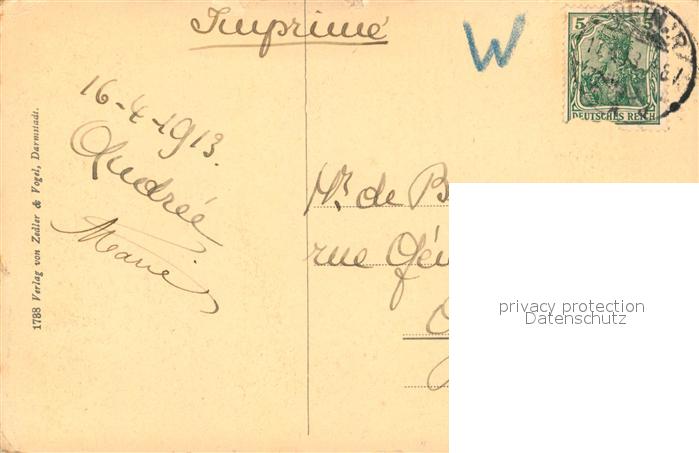 Imprimé
W
5
DEUTSCHES REICH
16-4-1913.
Andrée
Marie
Mr de B
rue Gé
privacy protection
Datenschutz
1788 Verlag von Zedler & Vogel, Darmstadt.